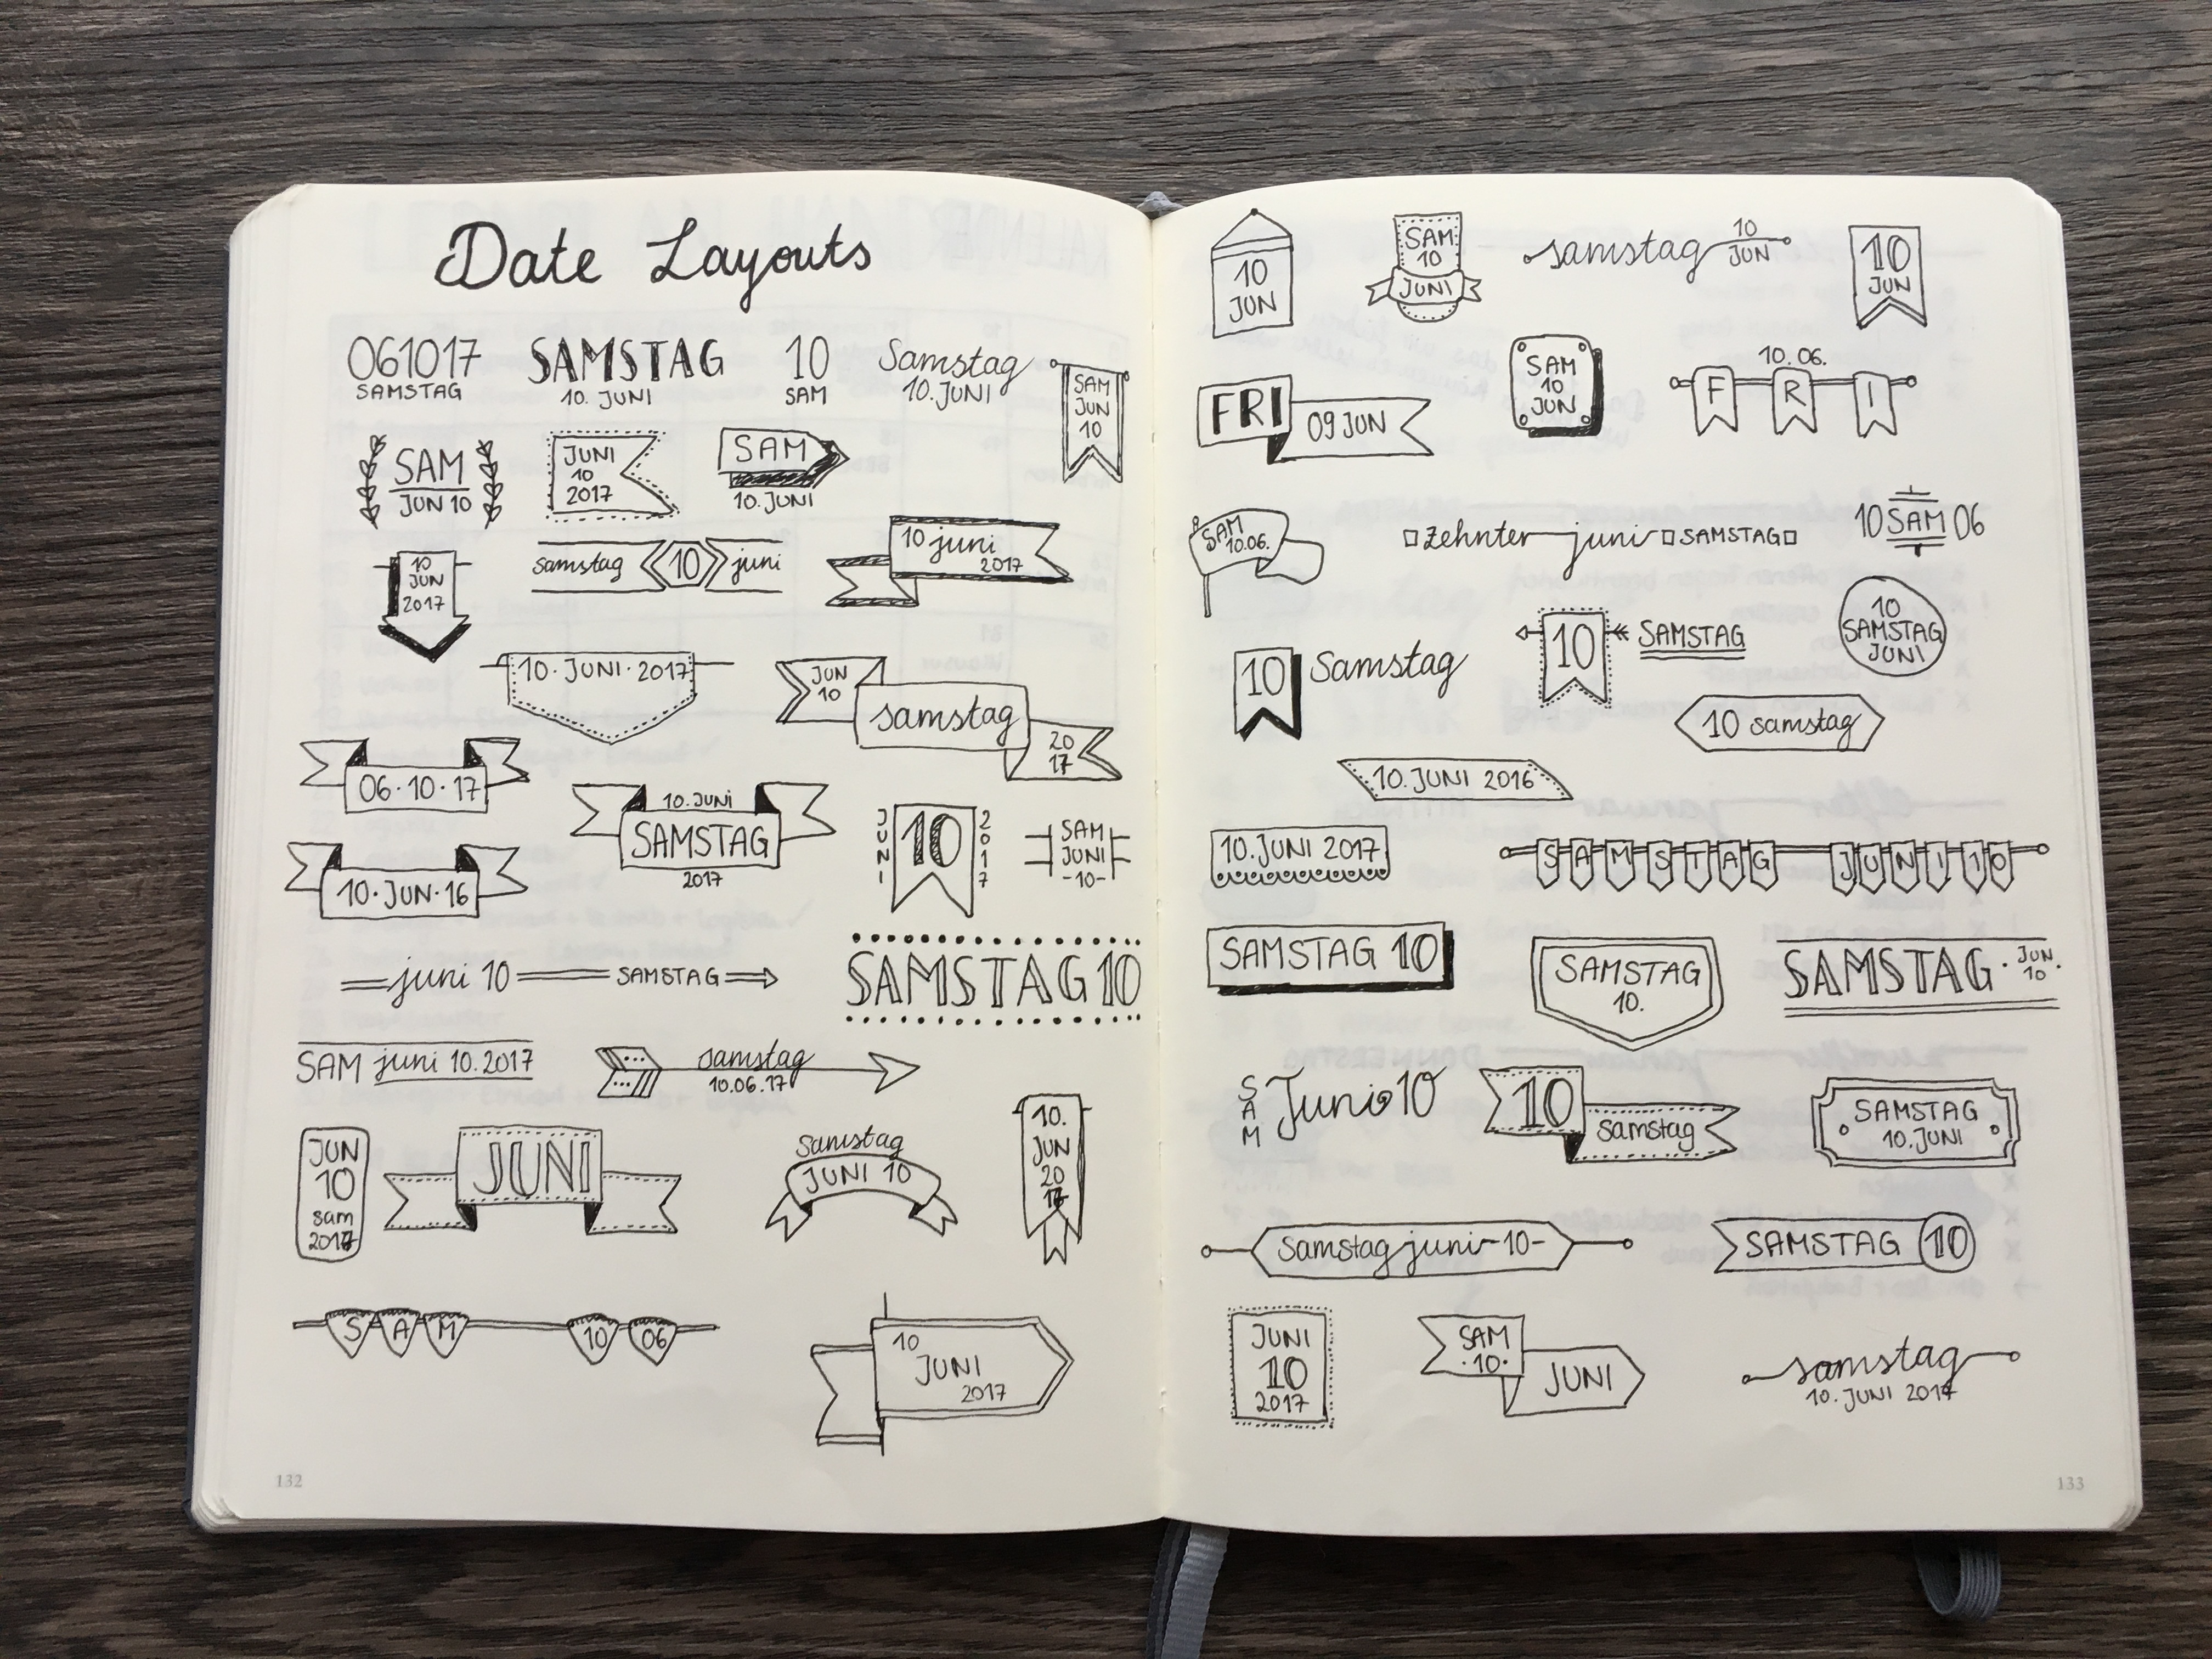 Date Layouts
061017
SAMSTAG
SAMSTAG
10. JUNI
10
SAM
Samstag
10. JUNI
SAM
JUN
10
SAM
JUN 10
JUNI
10
2017
SAM
10. JUNI
10
JUN
2017
samstag 10 juni
10 juni
2017
10 · JUNI · 2017
JUN
10
samstag
20
17
06 · 10 · 17
10. JUNI
SAMSTAG
2017
JUNI
10
2017
SAM
JUNI
-10-
10 · JUN · 16
juni 10 SAMSTAG
SAMSTAG 10
SAM juni 10. 2017
samstag
10.06.17
JUN
10
sam
2017
JUNI
Samstag
JUNI 10
10.
JUN
20
SAM 10 06
10
JUNI
2017
132
10
JUN
SAM
10
JUNI
samstag 10
JUN
10
JUN
FRI
09 JUN
SAM
10
JUN
10.06.
FRI
SAM
10.06.
zehnter juni SAMSTAG
10 SAM 06
10 Samstag
10 SAMSTAG
10
SAMSTAG
JUNI
10 samstag
10. JUNI 2016
10. JUNI 2017
SAMSTAG JUNI 10
SAMSTAG 10
SAMSTAG
10.
SAMSTAG · JUN.
10
SAM
Juni 10
10
samstag
SAMSTAG
10. JUNI
Samstag juni -10-
SAMSTAG 10
JUNI
10
2017
SAM
· 10 ·
JUNI
samstag
10. JUNI 2017
133